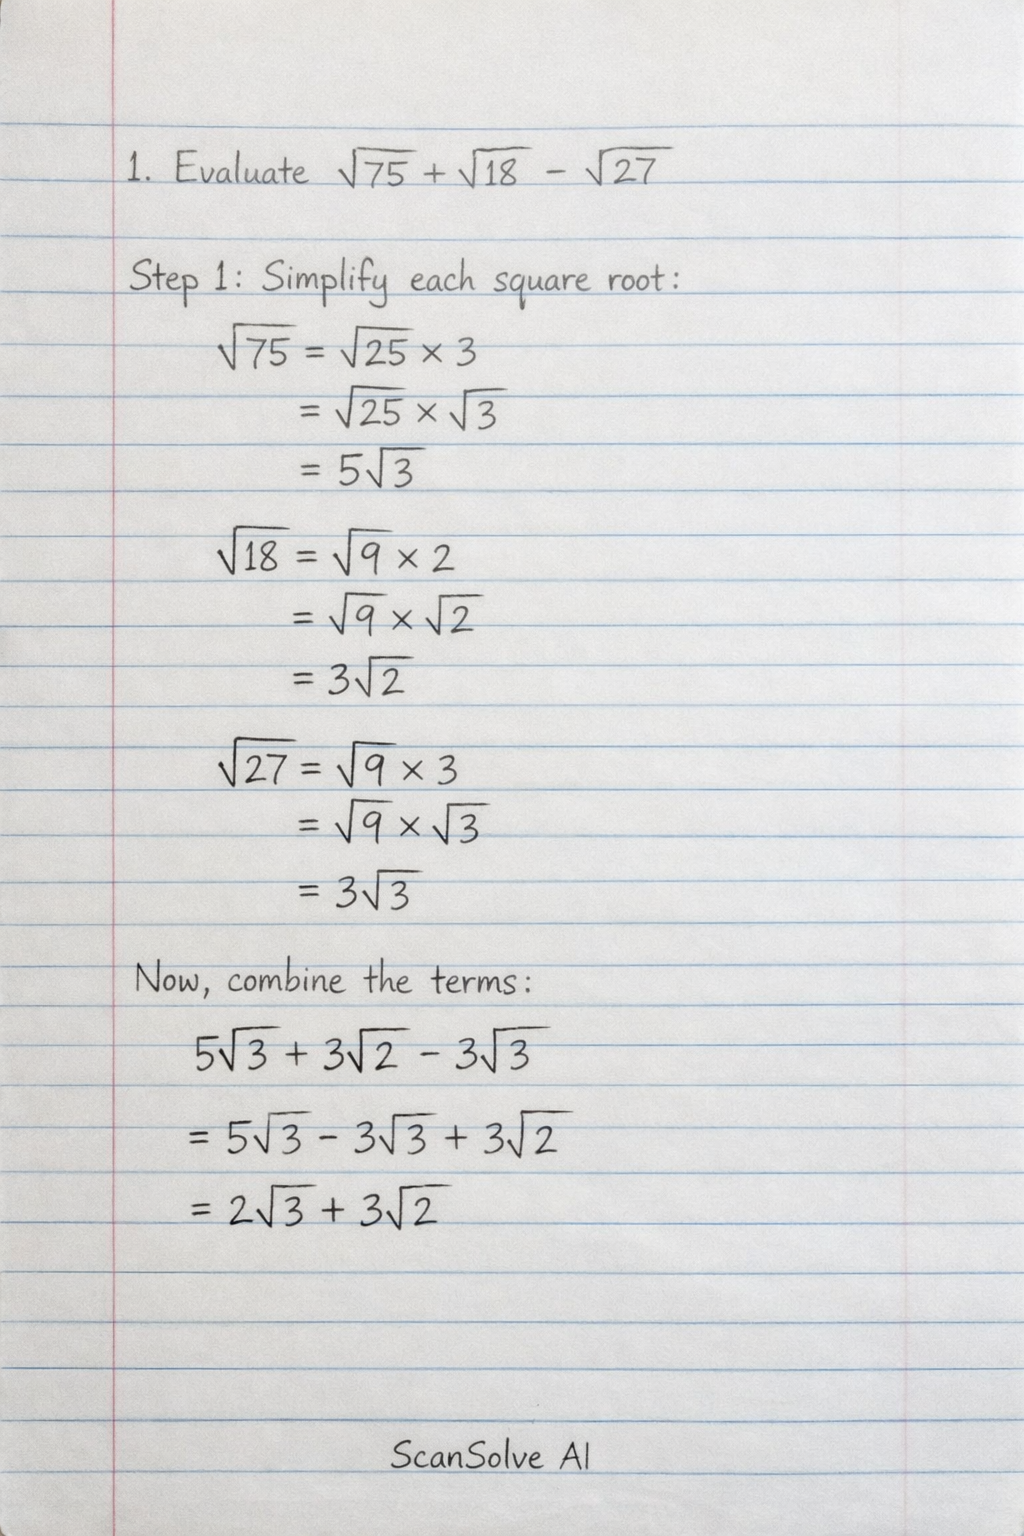 1. Evaluate √75 + √18 − √27
Step 1: Simplify each square root:
√75 = √25 × 3
= √25 × √3
= 5√3
√18 = √9 × 2
= √9 × √2
= 3√2
√27 = √9 × 3
= √9 × √3
= 3√3
Now, combine the terms:
5√3 + 3√2 − 3√3
= 5√3 − 3√3 + 3√2
= 2√3 + 3√2
ScanSolve AI